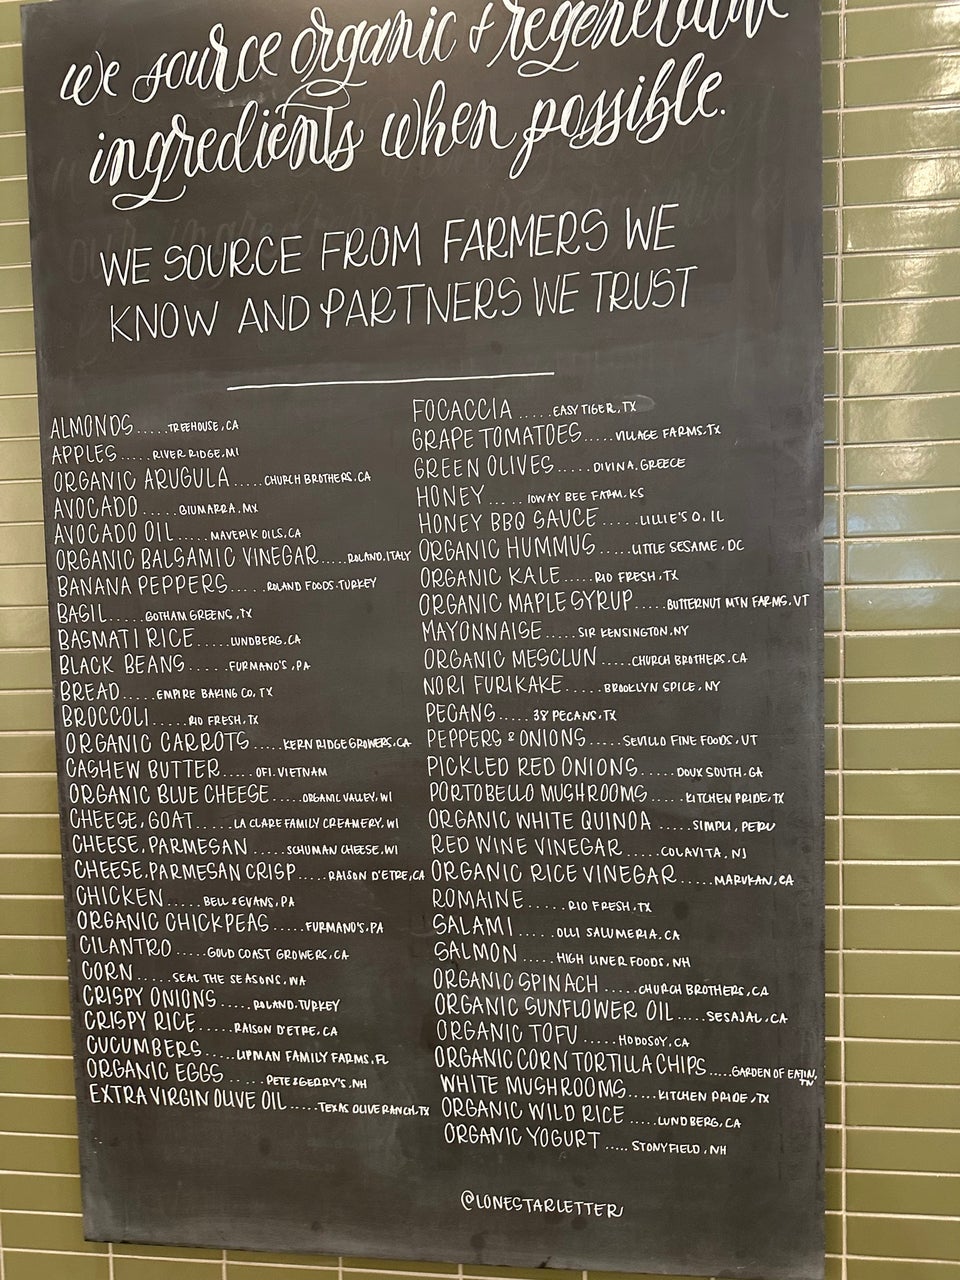 we source organic + regenerative
ingredients when possible.
WE SOURCE FROM FARMERS WE
KNOW AND PARTNERS WE TRUST
ALMONDS.....TREEHOUSE, CA
APPLES.....RIVER RIDGE, MI
ORGANIC ARUGULA.....CHURCH BROTHERS, CA
AVOCADO.....GIUMARRA, MX
AVOCADO OIL.....MAVERIK OILS, CA
ORGANIC BALSAMIC VINEGAR.....ROLAND, ITALY
BANANA PEPPERS.....ROLAND FOODS, TURKEY
BASIL.....GOTHAM GREENS, TX
BASMATI RICE.....LUNDBERG, CA
BLACK BEANS.....FURMANO'S, PA
BREAD.....EMPIRE BAKING CO, TX
BROCCOLI.....RIO FRESH, TX
ORGANIC CARROTS.....KERN RIDGE GROWERS, CA
CASHEW BUTTER.....OFI, VIETNAM
ORGANIC BLUE CHEESE.....ORGANIC VALLEY, WI
CHEESE, GOAT.....LA CLARE FAMILY CREAMERY, WI
CHEESE, PARMESAN.....SCHUMAN CHEESE, WI
CHEESE, PARMESAN CRISP.....RAISON D'ETRE, CA
CHICKEN.....BELL & EVANS, PA
ORGANIC CHICKPEAS.....FURMANO'S, PA
CILANTRO.....GOLD COAST GROWERS, CA
CORN.....SEAL THE SEASONS, WA
CRISPY ONIONS.....ROLAND, TURKEY
CRISPY RICE.....RAISON D'ETRE, CA
CUCUMBERS.....LIPMAN FAMILY FARMS, FL
ORGANIC EGGS.....PETE & GERRY'S, NH
EXTRA VIRGIN OLIVE OIL.....TEXAS OLIVE RANCH, TX
FOCACCIA.....EASY TIGER, TX
GRAPE TOMATOES.....VILLAGE FARMS, TX
GREEN OLIVES.....DIVINA, GREECE
HONEY.....IOWAY BEE FARM, KS
HONEY BBQ SAUCE.....LILLIE'S Q, IL
ORGANIC HUMMUS.....LITTLE SESAME, DC
ORGANIC KALE.....RIO FRESH, TX
ORGANIC MAPLE SYRUP.....BUTTERNUT MTN FARMS, VT
MAYONNAISE.....SIR KENSINGTON, NY
ORGANIC MESCLUN.....CHURCH BROTHERS, CA
NORI FURIKAKE.....BROOKLYN SPICE, NY
PECANS.....38° PECANS, TX
PEPPERS & ONIONS.....SEVILLO FINE FOODS, UT
PICKLED RED ONIONS.....DOUX SOUTH, GA
PORTOBELLO MUSHROOMS.....KITCHEN PRIDE, TX
ORGANIC WHITE QUINOA.....SIMPLI, PERU
RED WINE VINEGAR.....COLAVITA, NJ
ORGANIC RICE VINEGAR.....MARUKAN, CA
ROMAINE.....RIO FRESH, TX
SALAMI.....OLLI SALUMERIA, CA
SALMON.....HIGH LINER FOODS, NH
ORGANIC SPINACH.....CHURCH BROTHERS, CA
ORGANIC SUNFLOWER OIL.....SESAJAL, CA
ORGANIC TOFU.....HODOSOY, CA
ORGANIC CORN TORTILLA CHIPS.....GARDEN OF EATIN, TN
WHITE MUSHROOMS.....KITCHEN PRIDE, TX
ORGANIC WILD RICE.....LUNDBERG, CA
ORGANIC YOGURT.....STONYFIELD, NH
@LONESTARLETTER